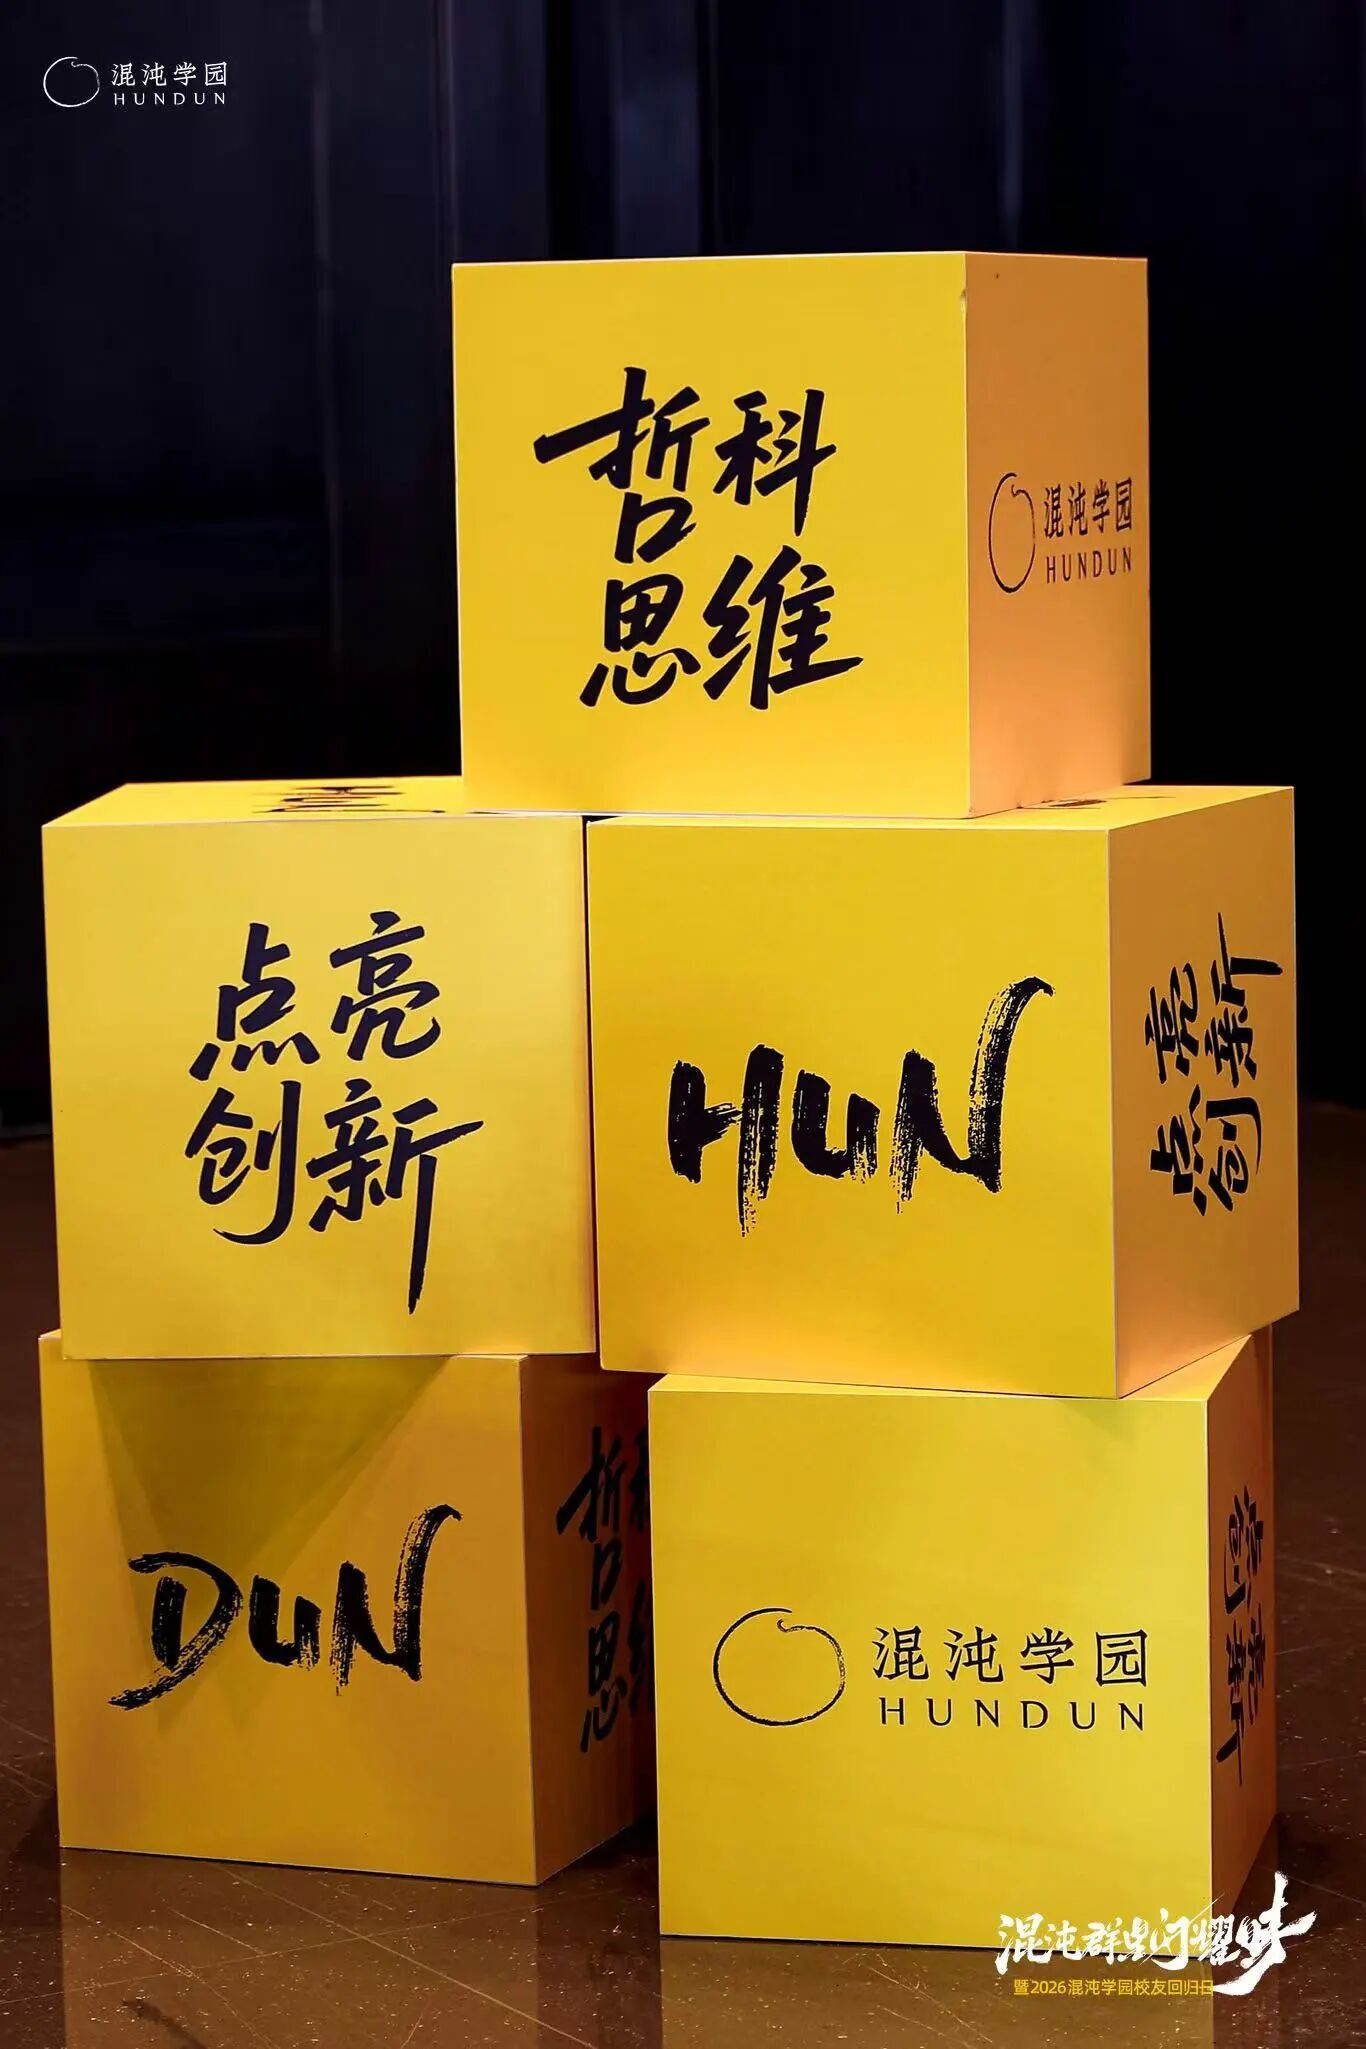 混沌学园
HUNDUN
哲科
思维
混沌学园
HUNDUN
点亮
创新
HUN
点亮
创新
DUN
哲科
思维
混沌学园
HUNDUN
点亮
创新
混沌群星闪耀时
暨2026混沌学园校友回归日